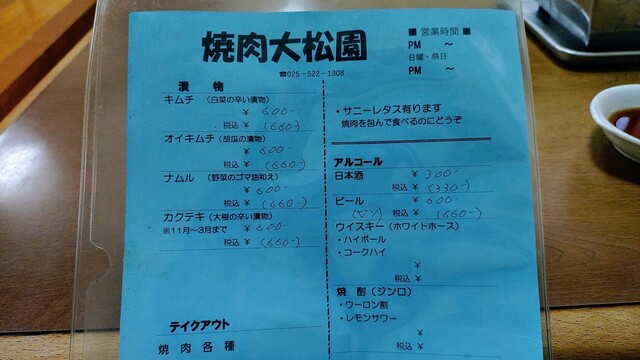 焼肉大松園
☎025-522-1308
■ 営業時間 ■
PM ～
日曜・祭日
PM ～
漬物
キムチ （白菜の辛い漬物）
￥ 600-
税込 ￥ (660-)
オイキムチ （胡瓜の漬物）
￥ 600-
税込 ￥ (660-)
ナムル （野菜のゴマ油和え）
￥ 600-
税込 ￥ (660-)
カクテキ （大根の辛い漬物）
※11月〜3月まで ￥ 600-
税込 ￥ (660-)
テイクアウト
焼肉各種
・サニーレタス有ります
焼肉を包んで食べるのにどうぞ
アルコール
日本酒 ￥ 300-
税込 ￥ (330-)
ビール ￥ 600-
税込 ￥ (660-)
ウイスキー（ホワイトホース）
・ハイボール
・コークハイ
￥
税込 ￥
焼酎（ジンロ）
・ウーロン割
・レモンサワー
￥
税込 ￥